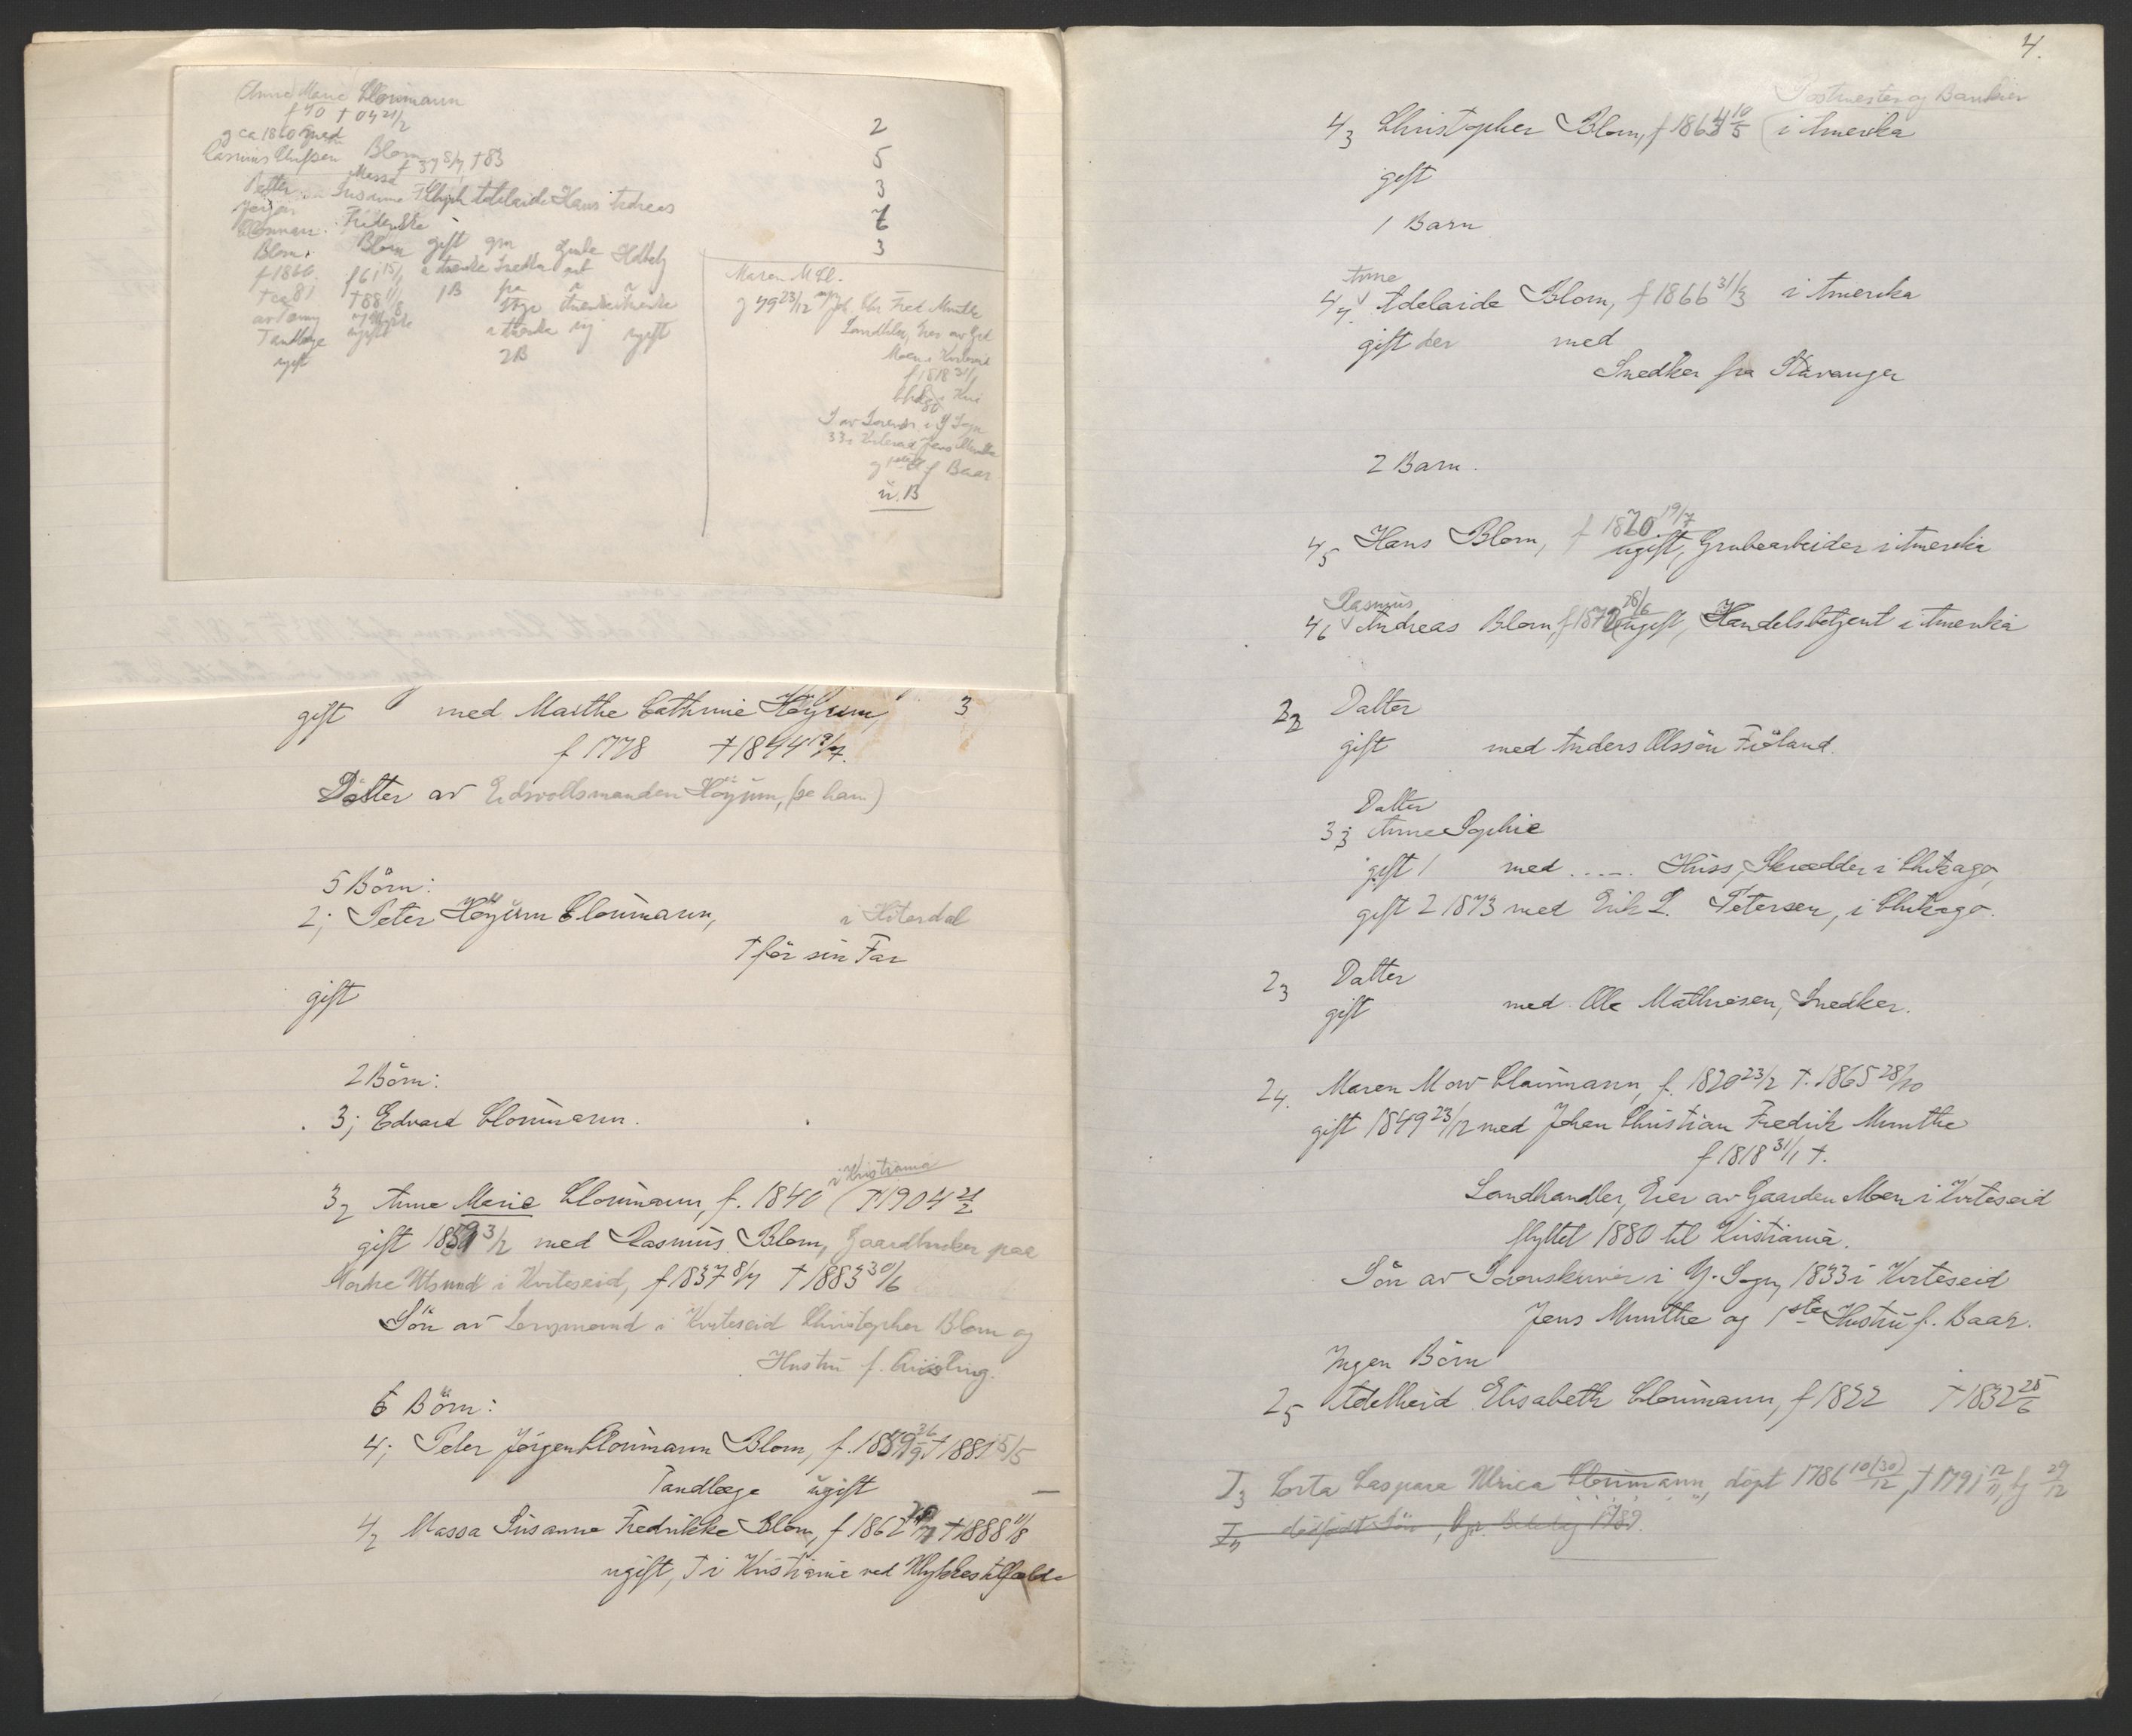 Anne Marie Cloumann
f 40 † 04 21/2
g ca 1860 med
Rasmus Blom
f 37 8/4 † 83
Petter Massa Susanne Chph Adelaide Hans Andreas
Jørgen Fredrikke
Cloumann
Blom. Blom gift gm
f 1860. i Amerika Snedker
† ca 81 † 88 11/8 1 B fra
Tandlæge ugift i Amerika ugift
ugift 2 B
2
5
3
7
6
3
Maren M Cl.
g 49 23/12 m Joh. Chr Fred Munthe
Landhdlr, Eier av Grd
Moen i Kviteseid
f 1818 31/1
S. av Sorenskr i Y Sogn
33 i Kviteseid Jens Munthe
g f Baar
u. B
gift med Marthe Cathrine Høyum, 3
f 1778 † 1844 19/7.
Datter av Eidsvollsmanden Høyum, (se ham)
5 Börn:
2; Peter Höyum Cloumann, i Hiterdal
† för sin Far
gift
2 Börn:
3; Edvard Cloumann.
i Kristiania
3 2 Anne Marie Cloumann, f. 1840 († 1904 21/2
gift 1859 3/2 med Rasmus Blom, Gaardbruker paa
Utsund i Kviteseid, f 1837 8/4 † 1883 30/6
Sön av Lensmand i Kviteseid Christopher Blom og
Hustru f. Qvisling.
6 Börn:
4; Peter Jørgen Cloumann Blom, f. 1859 26/9 † 1881 5/5
Tandlæge ugift
4 2 Massa Susanne Fredrikke Blom, f 1862 † 1888 11/8
ugift, † i Kristiania ved Ulykkestilfælde
4.
Postmester og Bankier
4 3 Christopher Blom, f 1864 10/5 (i Amerika
gift
1 Barn
Anne
4 4. Adelaide Blom, f 1866 31/3 i Amerika
gift der med
Snedker fra Stavanger
2 Barn.
4 5 Hans Blom, f 1870 19/7 ugift, Grubearbeider i Amerika
Rasmus
4 6 Andreas Blom, f 1872 18/6 ugift, Handelsbetjent i Amerika
2 2 Datter
gift med Anders Olssön Fröland.
Datter
3 3 Anne Sophie
gift 1 med ..... Huss, Skrædder i Chikago,
gift 2 1873 med Erik L. Petersen, i Chikago.
2 3 Datter
gift med Ole Mathiesen, Snedker.
2 4. Maren Mow Cloumann, f. 1820 23/2 †. 1865 28/10
gift 1849 23/12 med Johan Christian Fredrik Munthe
f 1818 31/1 †.
Landhandler, Eier av Gaarden Moen i Kviteseid
flyttet 1880 til Kristiania.
Sön av Sorenskriver i Y. Sogn, 1833 i Kviteseid
Jens Munthe og 1ste Hustru f. Baar.
Ingen Börn
2 5 Adelheid Elisabeth Cloumann, f 1822 † 1832 28/6
I 3 Caspara Ulrica Cloumann, döpt 1786 10(30)/12, † 1791 12/11, bg 29/12
dødfødt Sön, 1789.